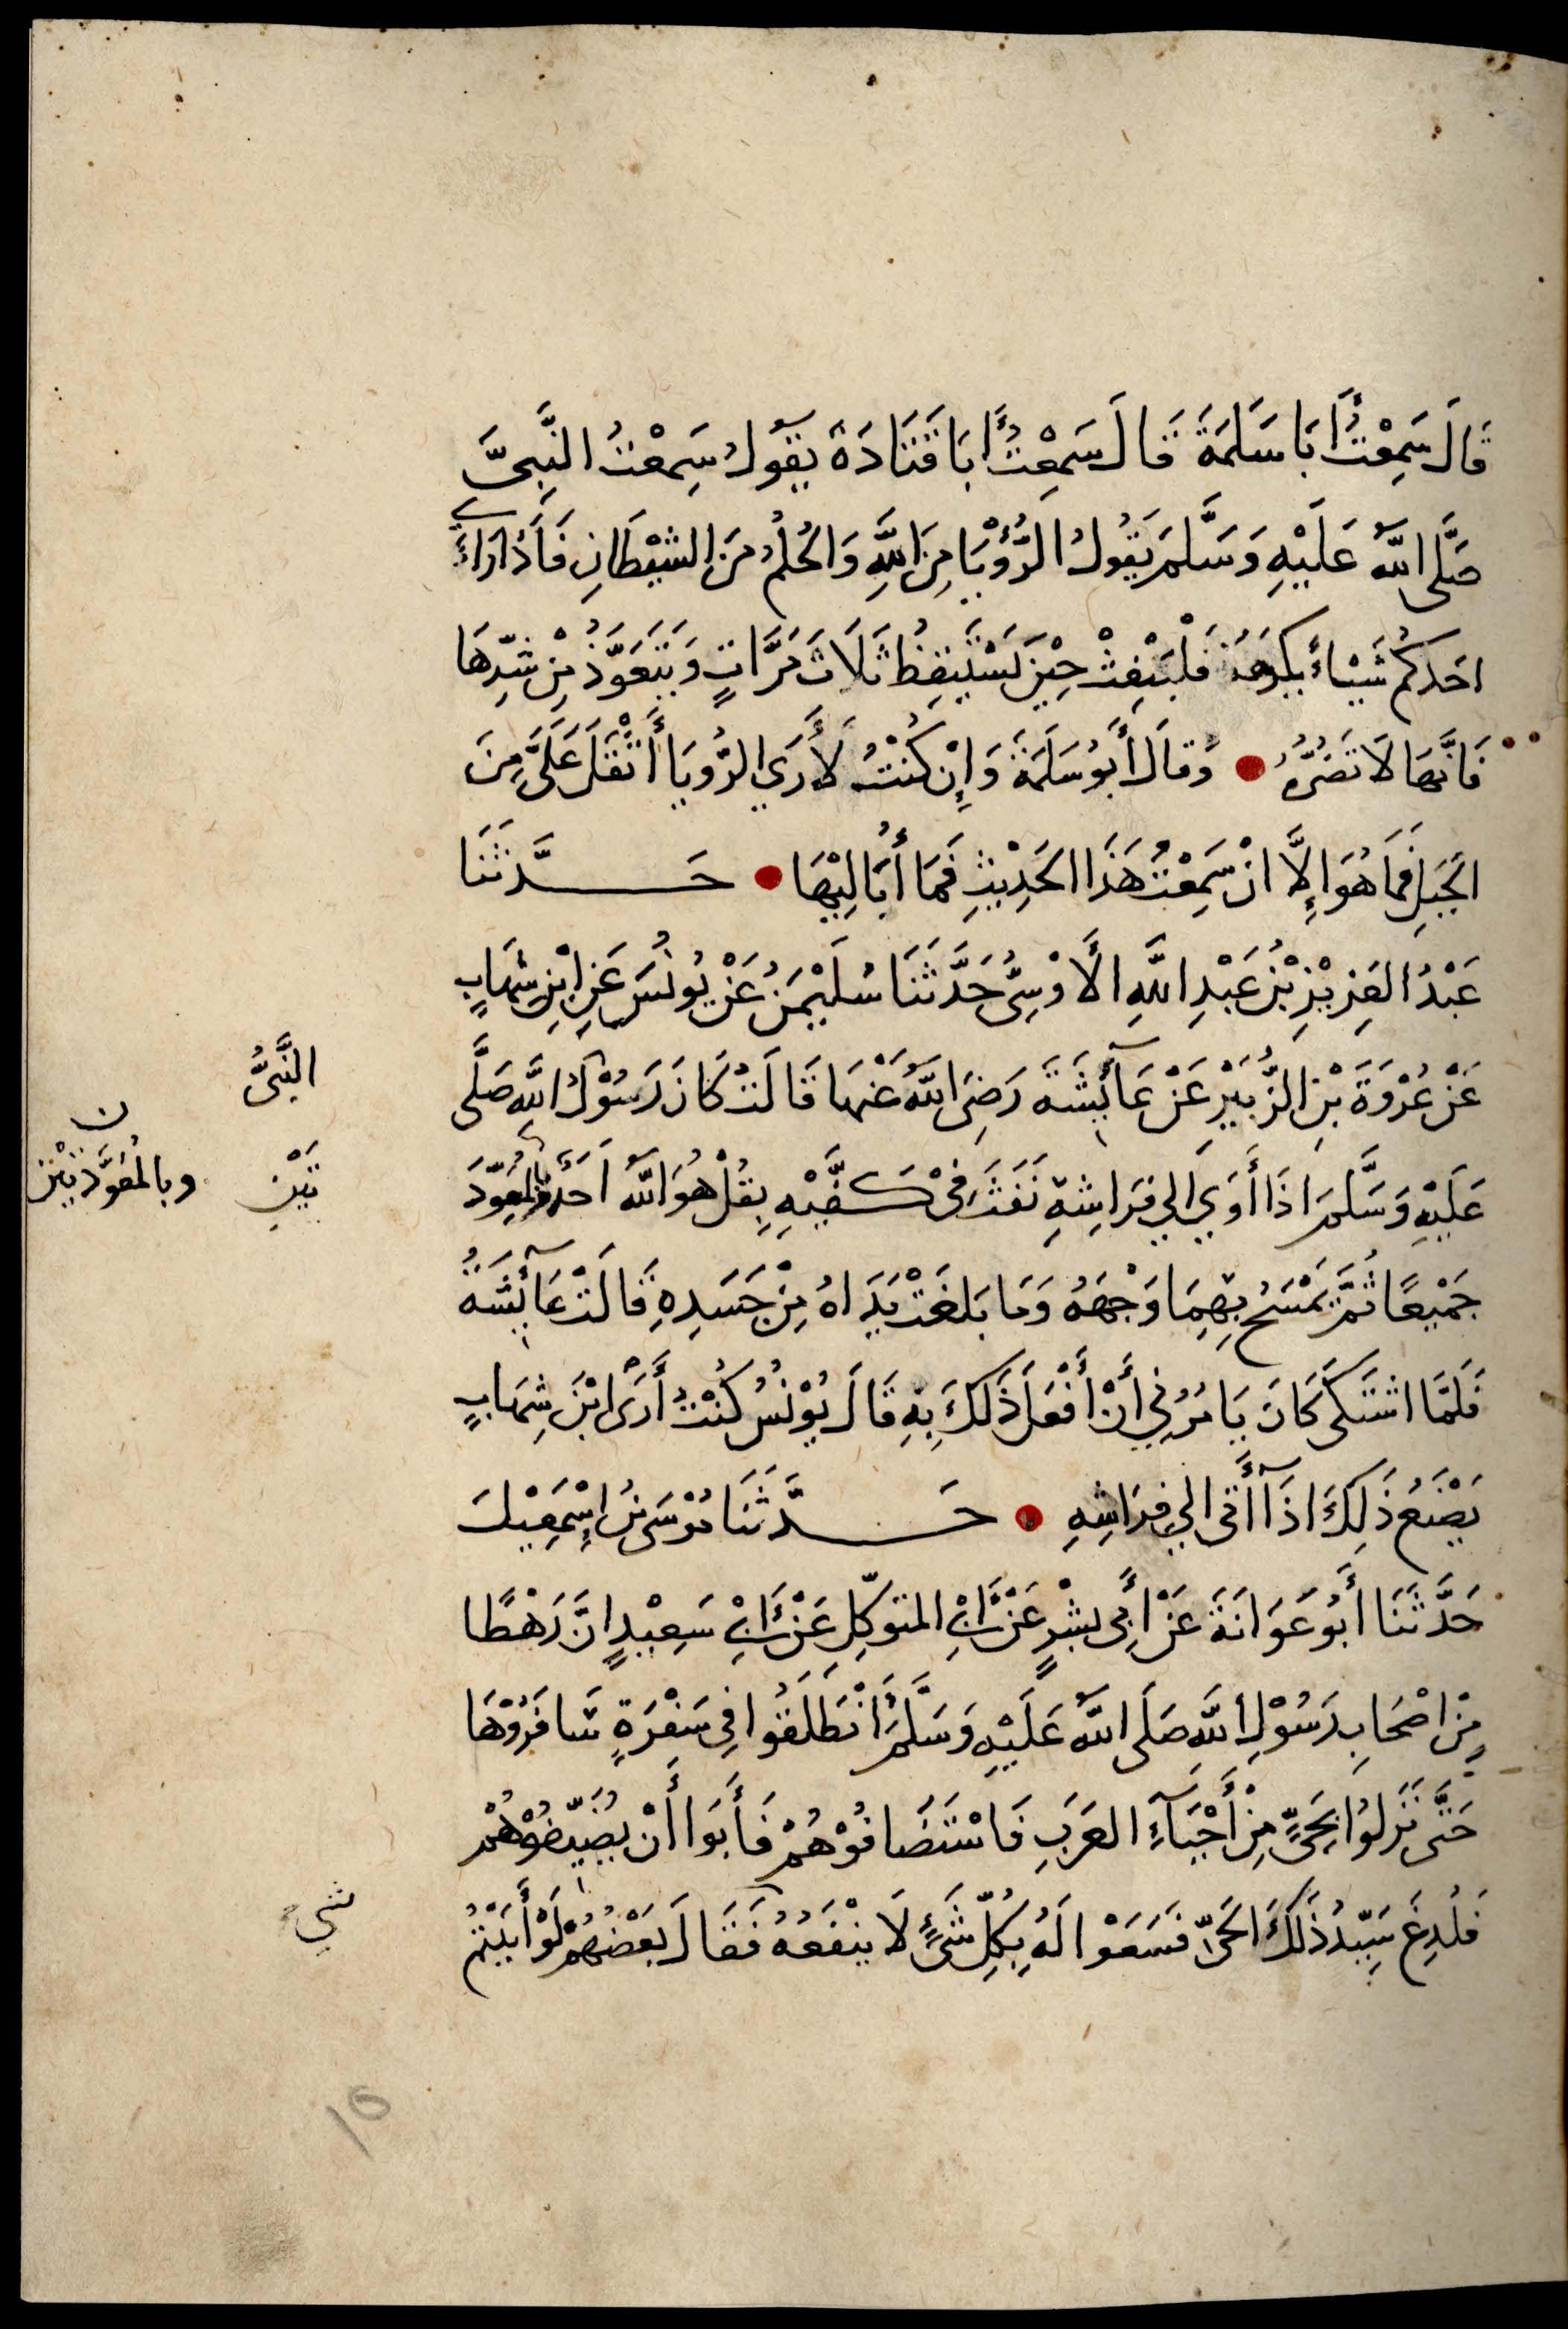 قَالَ سَمِعْتُ أَبَا سَلَمَةَ قَالَ سَمِعْتُ أَبَا قَتَادَةَ يَقُولُ سَمِعْتُ النَّبِيَّ
صَلَّى اللَّهُ عَلَيْهِ وَسَلَّمَ يَقُولُ الرُّؤْيَا مِنَ اللَّهِ وَالحُلْمُ مِنَ الشَّيْطَانِ فَاِذَا رَاَى
اَحَدُكُمْ شَيْئًا يَكْرَهُهُ فَلْيَنْفِثْ حِيْنَ يَسْتَيْقِظُ ثَلَاثَ مَرَّاتٍ وَيَتَعَوَّذُ مِنْ شَرِّهَا
فَاِنَّهَا لَا تَضُرُّهُ وَقَالَ أَبُو سَلَمَةَ وَإِنْ كُنْتُ لَأَرَي الرُّويَا أَثْقَلَ عَلَيَّ مِنَ
الجَبَلِ فَمَا هُوَ إِلَّا اَنْ سَمِعْتُ هَذَا الحَدِيْثَ فَمَا أُبَالِيْهَا حَدَّثَنَا
عَبْدُ العَزِيْزِ بْنُ عَبْدِ اللَّهِ الأَوْسِيُّ حَدَّثَنَا سُلَيْمَنُ عَنْ يُونُسَ عَنِ ابْنِ شِهَابٍ
عَنْ عُرْوَةَ بْنِ الزُّبَيْرِ عَنْ عَآئِشَةَ رَضِيَ اللَّهُ عَنْهَا قَالَتْ كَانَ رَسُوْلُ اللَّهِ صَلَّى
النَّبِيُّ
عَلَيْهِ وَسَلَّمَ اِذَا أَوَي اِلي فِرَاشِهِ نَفَثَ فِيْ كَفَّيْهِ بِقُلْ هُوَ اللَّهُ اَحَدٌ وَبِالْمُعَوِّذَ
تَيْنِ
وبِالمُعَوَّذَتَيْنِ
ن
جَمِيْعًا ثُمَّ يَمْسَحُ بِهِمَا وَجْهَهُ وَمَا بَلَغَتْ يَدَاهُ مِنْ جَسَدِهِ قَالَتْ عَآئِشَةُ
فَلَمَّا اشْتَكَى كَانَ يَامُرُنِي أَنْ أَفْعَلَ ذَلِكَ بِهِ قَالَ يُوْنُسُ كُنْتُ أَرَى ابْنَ شِهَابٍ
يَصْنَعُ ذَلِكَ اِذَا أَتَى اِلي فِرَاشِهِ حَدَّثَنَا مُوْسَى بْنُ اِسْمَعِيْلَ
حَدَّثَنَا أَبُو عَوَانَةَ عَنْ أَبِي بِشْرٍ عَنْ أَبِي المتَوَكِّلِ عَنْ أَبِي سَعِيْدٍ اَنَّ رَهْطًا
مِنْ اَصْحَابِ رَسُوْلِ اللَّهِ صَلَى اللَّهُ عَلَيْهِ وَسَلَّمَ اَنْطَلَقُوا فِي سَفْرَةٍ سَافَرُوْهَا
حَتَّى نَزَلُوْا بِحَيٍّ مِنْ أَحْيَآءِ العَرَبِ فَاسْتَضَافُوْهُمْ فَأَبَوَا أَنْ يُضَيِّفُوْهُمْ
فَلُدِغَ سَيِّدُ ذَلِكَ الحَيِّ فَسَعَوْا لَهُ بِكُلِّ شَيْءٍ لَا يَنْفَعُهُ فَقَالَ بَعْضُهُمْ لَوْ أَتَيْتُمْ
شي
١٥